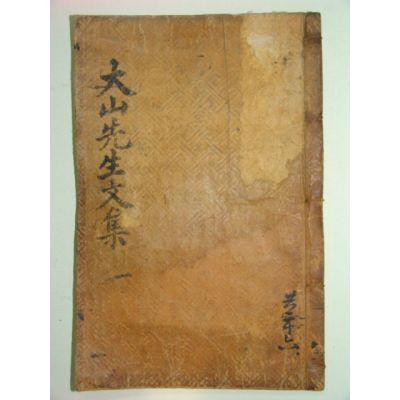 大山先生文集 一
共卄六